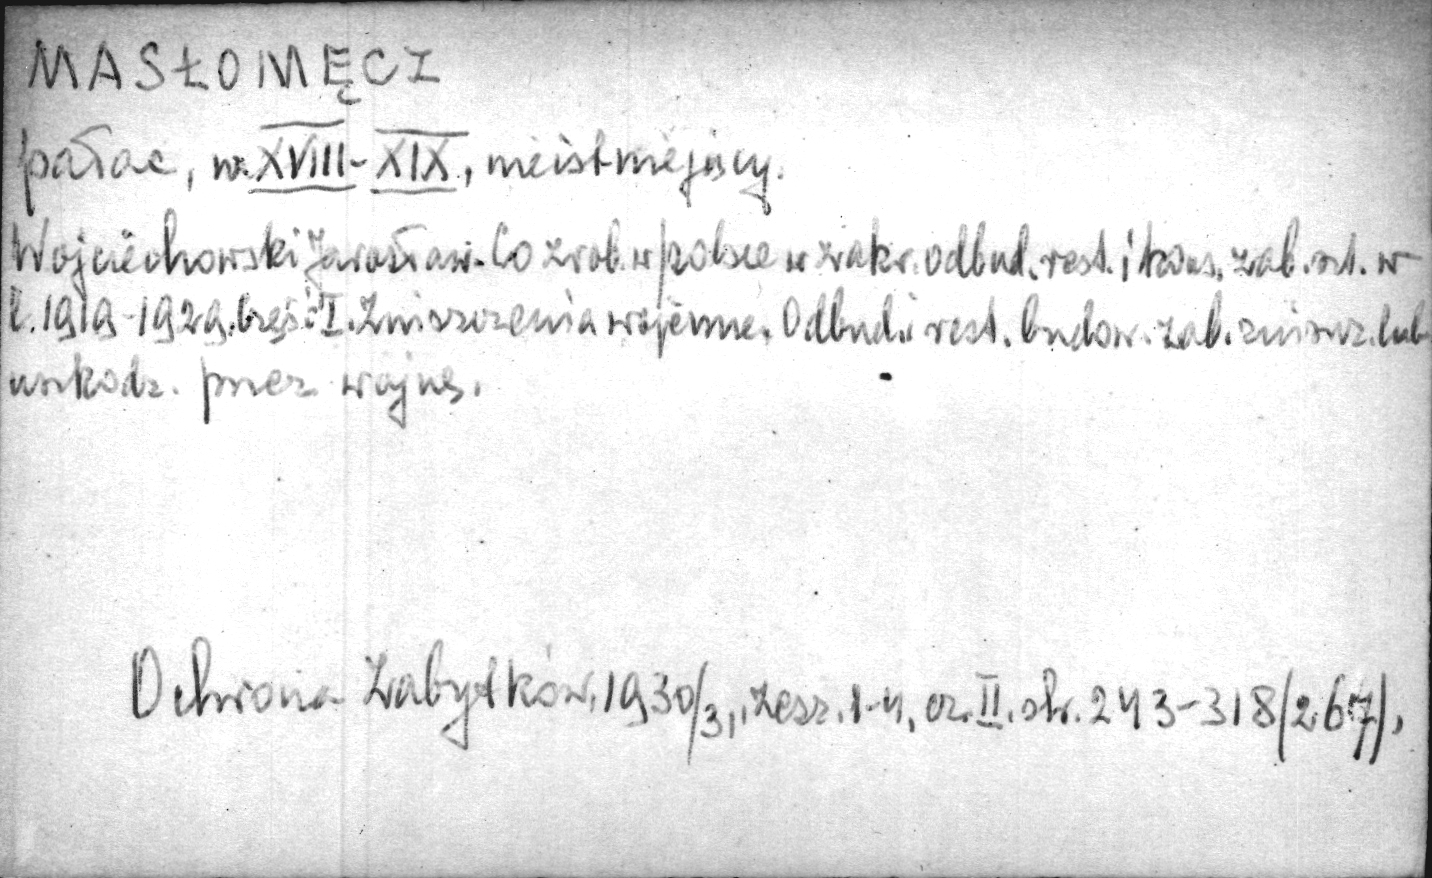 MASŁOMĘCZ
pałac, w. XVIII-XIX, nieistniejący.
Wojciechowski Jarosław. Co zrob. w Polsce w zakr. odbud. rest. i kons. zab. szt. w
l. 1919-1929. Część I. Zniszczenia wojenne. Odbud. i rest. budow. zab. zniszcz. lub
uszkodz. przez wojnę.
Ochrona Zabytków, 1930/31, zesz. 1-4, cz. II. str. 243-318/267/,